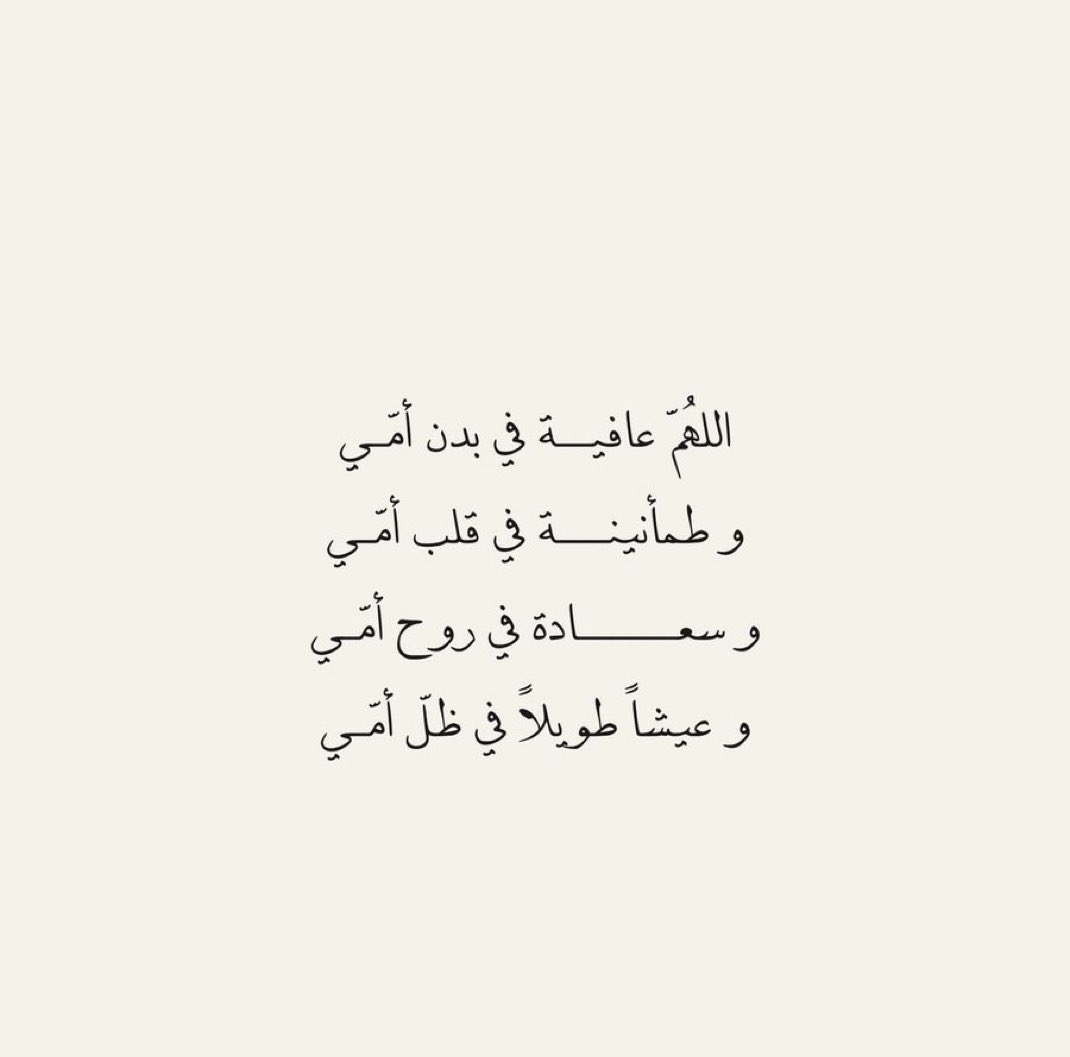 اللهُمّ عافيـــة في بدن أمّـي
و طمأنينـــة في قلب أمّـي
و سعـــــــادة في روح أمّـي
و عيشاً طويلاً في ظلّ أمّـي